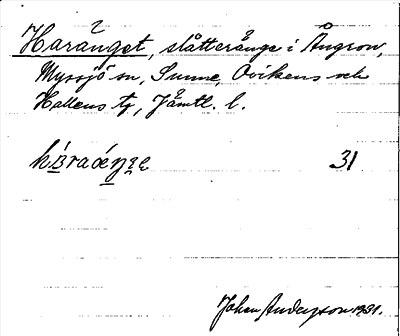 Haränget, slåtteränge i Ångron,
Myssjö sn, Sunne, Ovikens och
Hallens tg, Jämtl. l.
31
Johan Anderson 1931.